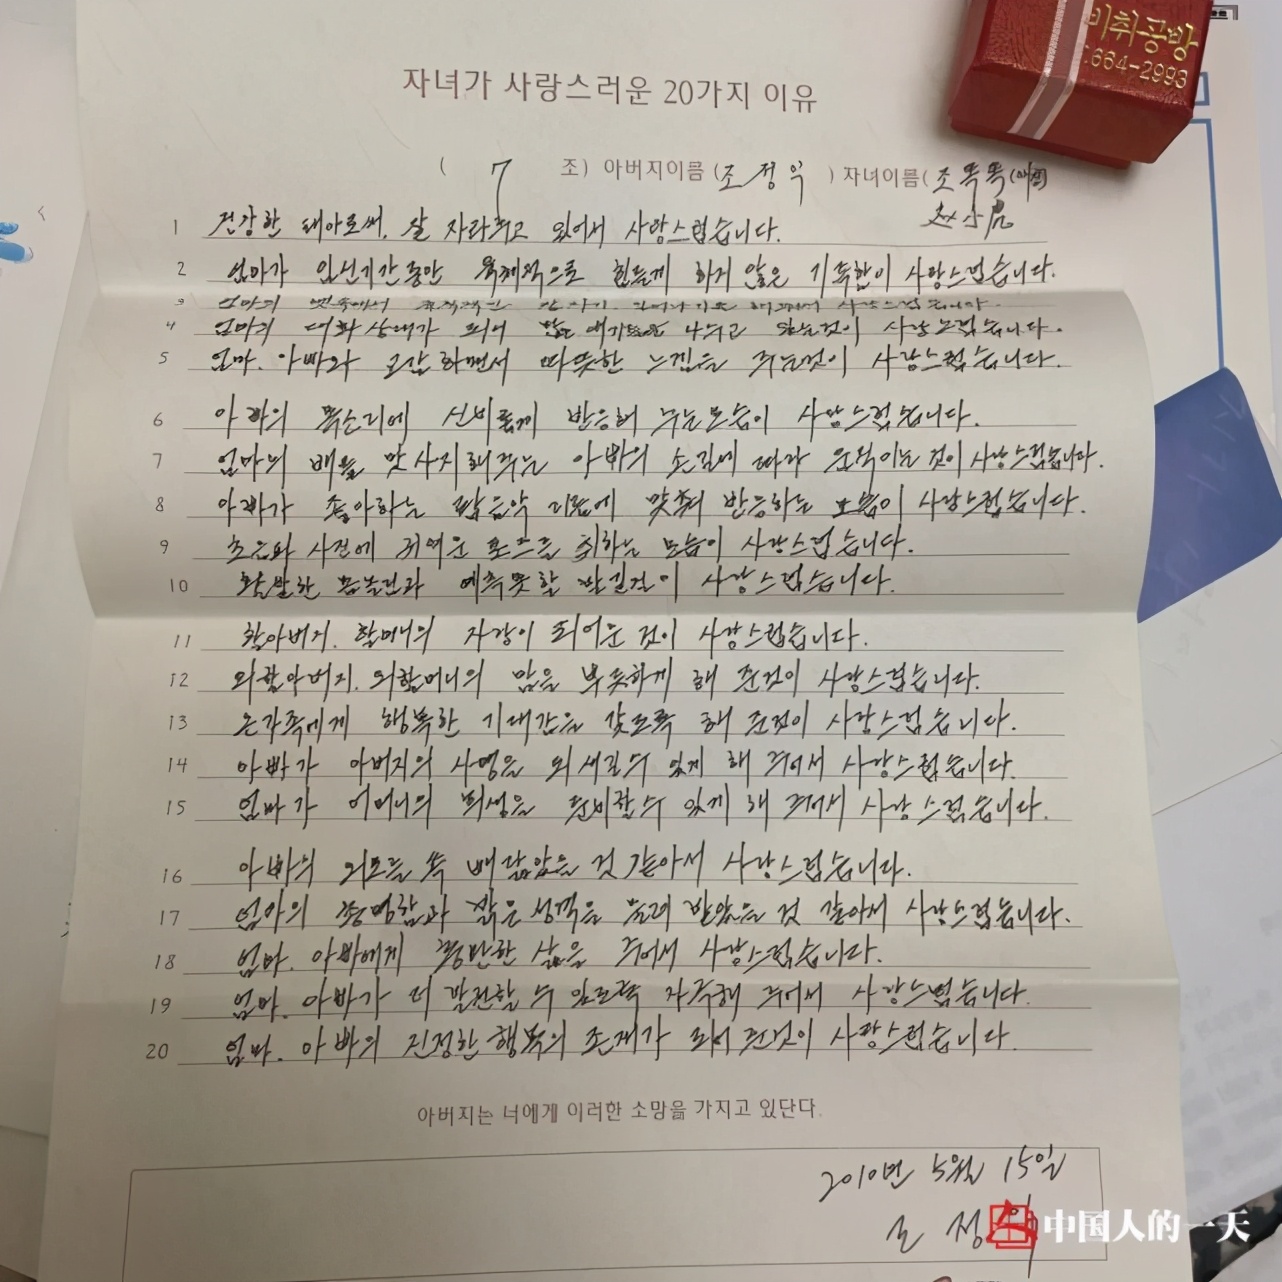 비취공방
664-2993
자녀가 사랑스러운 20가지 이유
( 7 조) 아버지이름 (조정익) 자녀이름 (조똑똑(애칭)
赵小虎
1 건강한 태아로써, 잘 자라주고 있어서 사랑스럽습니다.
2 엄마가 임신기간동안 육체적으로 힘들게 하지 않은 기특함이 사랑스럽습니다.
3 엄마의 뱃속에서 사랑스럽습니다.
4 엄마의 대화상대가 되어 많은 얘기들을 나누고 있는것이 사랑스럽습니다.
5 엄마. 아빠와 교감하면서 따뜻한 느낌을 주는것이 사랑스럽습니다.
6 아빠의 목소리에 신비롭게 반응해 주는모습이 사랑스럽습니다.
7 엄마의 배를 맛사지해주는 아빠의 손길에 따라 움직이는 것이 사랑스럽습니다.
8 아빠가 좋아하는 팝음악 리듬에 맞춰 반응하는 모습이 사랑스럽습니다.
9 초음파 사진에 귀여운 포즈를 취하는 모습이 사랑스럽습니다.
10 활발한 몸놀림과 예측못할 발길질이 사랑스럽습니다.
11 할아버지. 할머니의 자랑이 되어준 것이 사랑스럽습니다.
12 외할아버지. 외할머니의 맘을 뿌듯하게 해 준것이 사랑스럽습니다.
13 온가족에게 행복한 기대감을 갖도록 해 준것이 사랑스럽습니다.
14 아빠가 아버지의 사명을 되새길수 있게 해 주어서 사랑스럽습니다.
15 엄마가 어머니의 희생을 준비할수 있게 해 주어서 사랑스럽습니다.
16 아빠의 외모를 쏙 빼닮았을 것 같아서 사랑스럽습니다.
17 엄마의 총명함과 밝은 성격을 물려 받았을 것 같아서 사랑스럽습니다.
18 엄마. 아빠에게 풍만한 삶을 주어서 사랑스럽습니다.
19 엄마. 아빠가 더 발전할 수 있도록 자극해 주어서 사랑스럽습니다.
20 엄마. 아빠의 진정한 행복의 존재가 되어 준것이 사랑스럽습니다.
아버지는 너에게 이러한 소망을 가지고 있단다.
2010년 5월 15일
조정익
中国人的一天